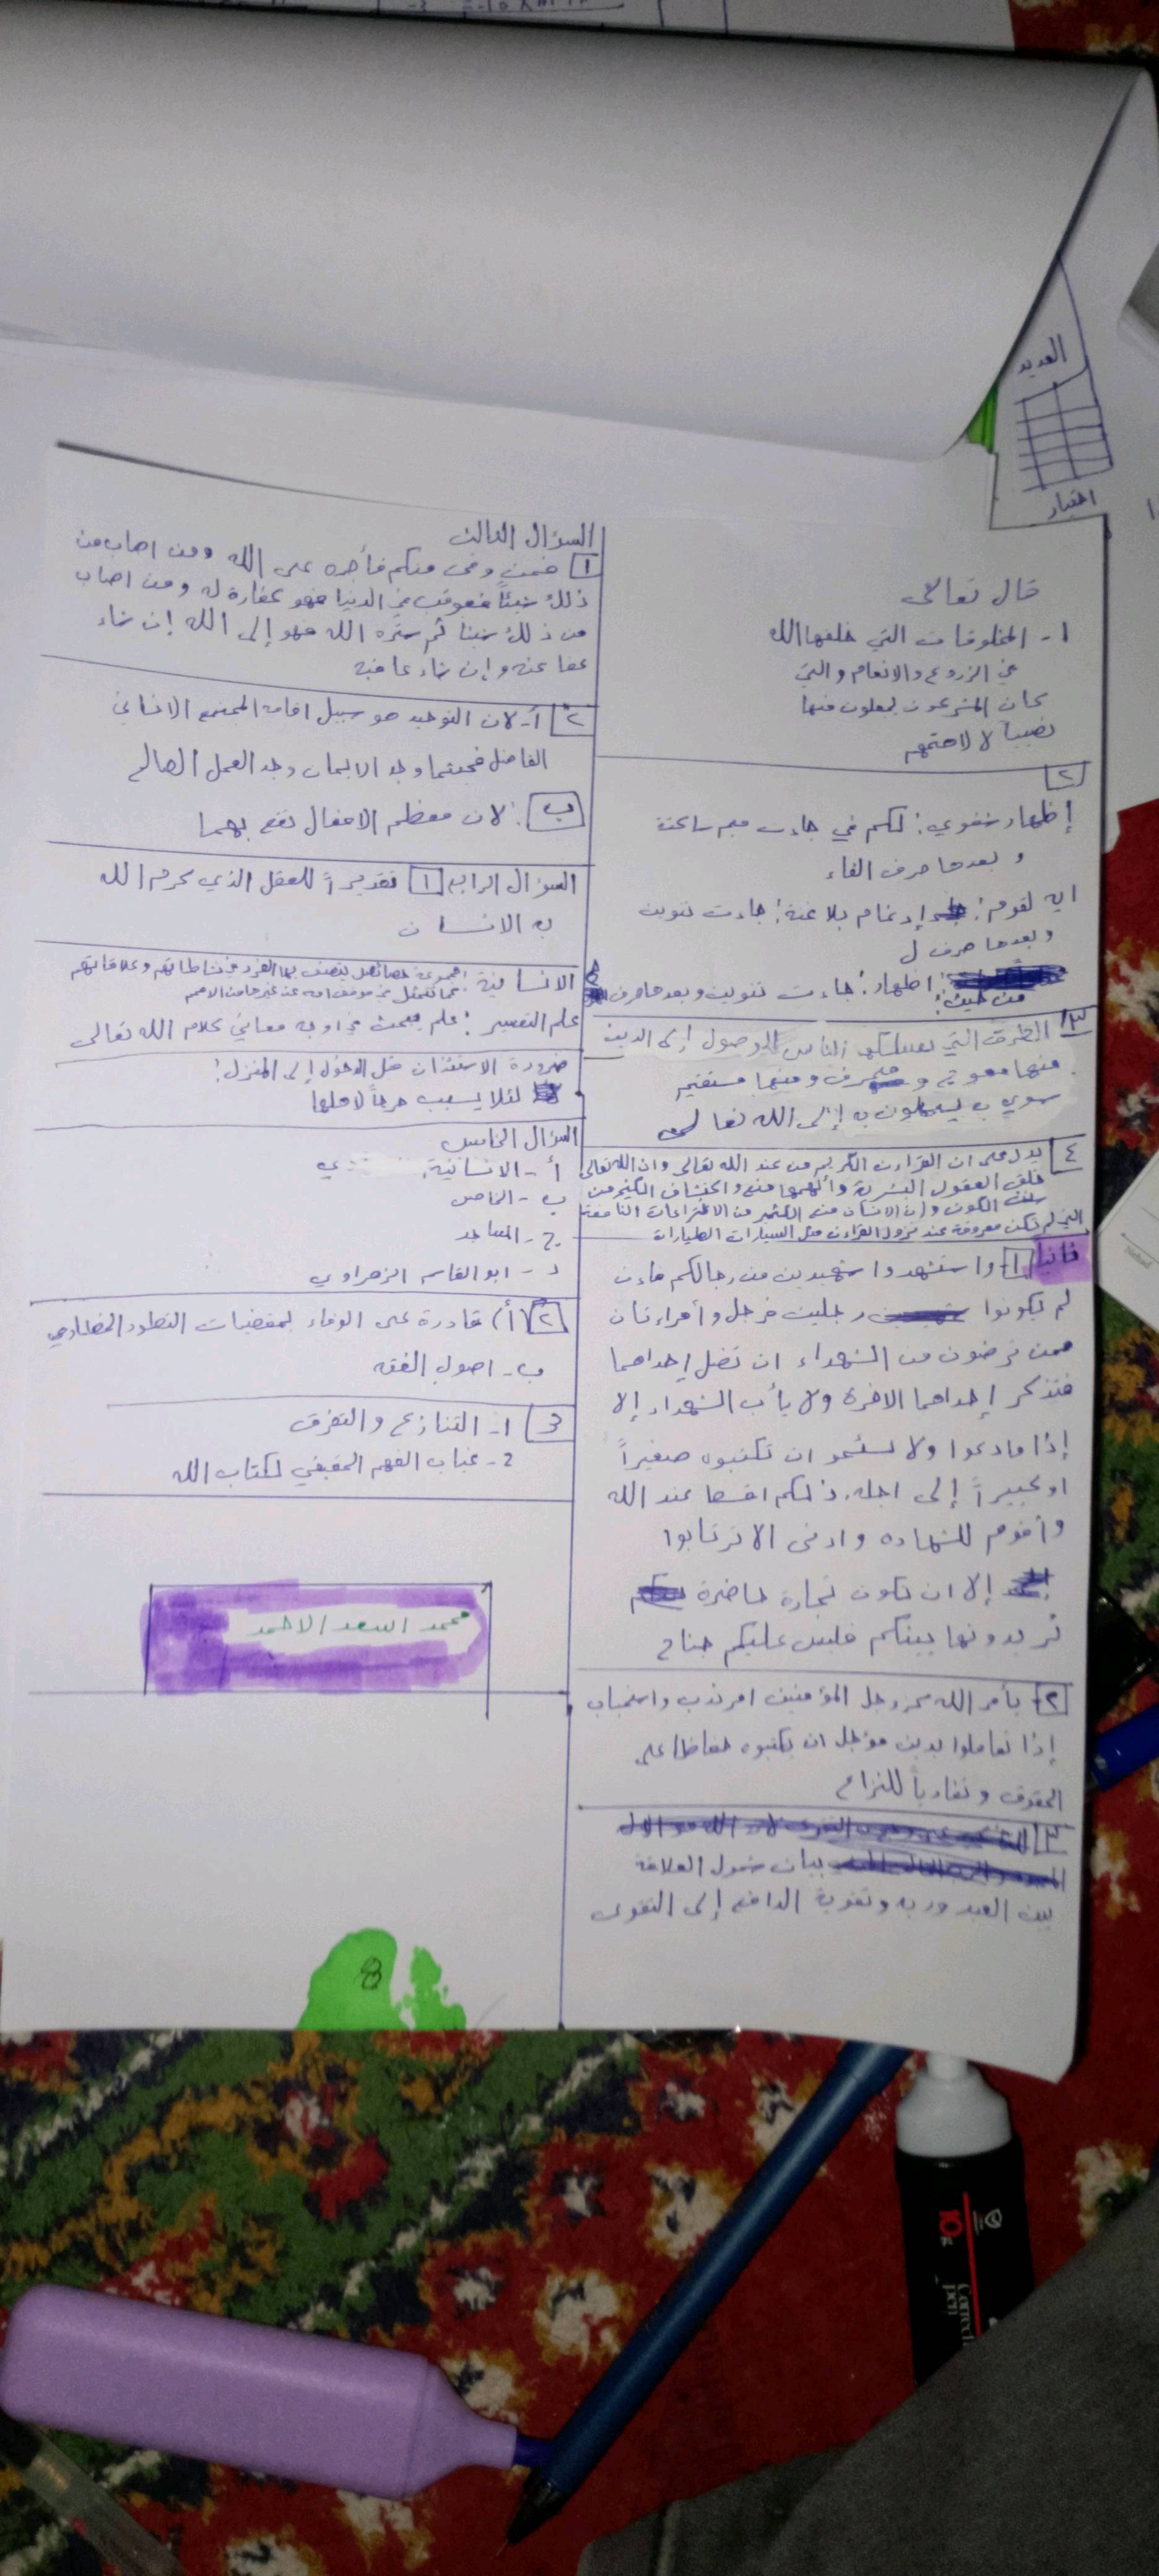 العديد
اختبار
قال تعالى
1- المخلوقات التي خلقها الله
في الزروع والانعام والتي
كان المشركون يجعلون منها
نصيباً لالاهتهم
٢
إظهار شفوي: لكم في جاءت ميم ساكنة
و بعدها حرف الفاء
اية لقوم: إدغام بلا غنة: جاءت تنوين
وبعدها حرف ل
اظهار: جاءت تنوين وبعدها حرف
من حيث:
٣ الطرق التي يسلكها الناس للوصول إلى الدين
منها معوج و منحرف ومنها مستقيم
سوي يصلون به إلى الله تعالى
٤ يدل على ان القرآن الكريم من عند الله تعالى وان الله تعالى
خلق العقول البشرية وألهمها اكتشاف الكثير من
سنن الكون وان الانسان الكثير من الاختراعات النافعة
التي لم تكن معروفة عند نزول القرآن مثل السيارات الطيارات
ثانيا 1- واستشهدوا شهيدين من رجالكم فان
لم يكونوا رجلين فرجل وأمرأتان
ممن ترضون من الشهداء ان تضل إحداهما
فتذكر إحداهما الاخرة ولا يأب الشهداء إلا
إذا مادعوا ولا تسئمو ان تكتبوه صغيراً
او كبيراً إلى اجله ذلكم اقسط عند الله
وأقوم للشهاده وادنى الا ترتابوا
إلا ان تكون تجارة حاضرة
تريدونها بينكم فليس عليكم جناح
٢- يأمر الله عزوجل المؤمنين امر ندب واستحباب
إذا تعاملوا بدين مؤجل ان يكتبوه حفاظا على
الحقوق و تفادياً للنزاع
٣
بيان شمول العلاقة
بين العبد وربه وتقوية الدافع إلى التقوى
السؤال الثالث
1 فمن وفى منكم فأجره على الله ومن اصاب من
ذلك شيئاً فعوقب في الدنيا فهو كفارة له ومن اصاب
من ذلك شيئا ثم ستره الله فهو إلى الله إن شاء
عفا عنه وإن شاء عاقبه
٢ أ- لان التوحيد هو سبيل اقامة المجتمع الانساني
الفاضل فحيثما وجد الايمان وجد العمل الصالح
ب: لان معظم الافعال تقع بهما
السؤال الرابع 1 تقديراً للعقل الذي كرم الله
به الانسان
الانسانية: مجموعة خصائص يتصف بها الفرد في نشاطاتهم وعلاقاتهم
كما تتمثل في موقف امة عند غيرها من الامم
علم التفسير: علم يبحث فيه معاني كلام الله تعالى
ضرورة الاستئذان قبل الدخول إلى المنزل:
لئلا يسبب حرجاً لاهلها
السؤال الخامس
أ- الانسانية
ب- الخاص
ج- المساجد
د- ابو القاسم الزهراوي
٢ أ) قادرة على الوفاء لمقتضيات التطور الحضاري
ب- اصول الفقه
3 1- التنازع والتفرق
2- غياب الفهم الحقيقي لكتاب الله
محمد اسعد الاحمد
8
10g
Correction
pen